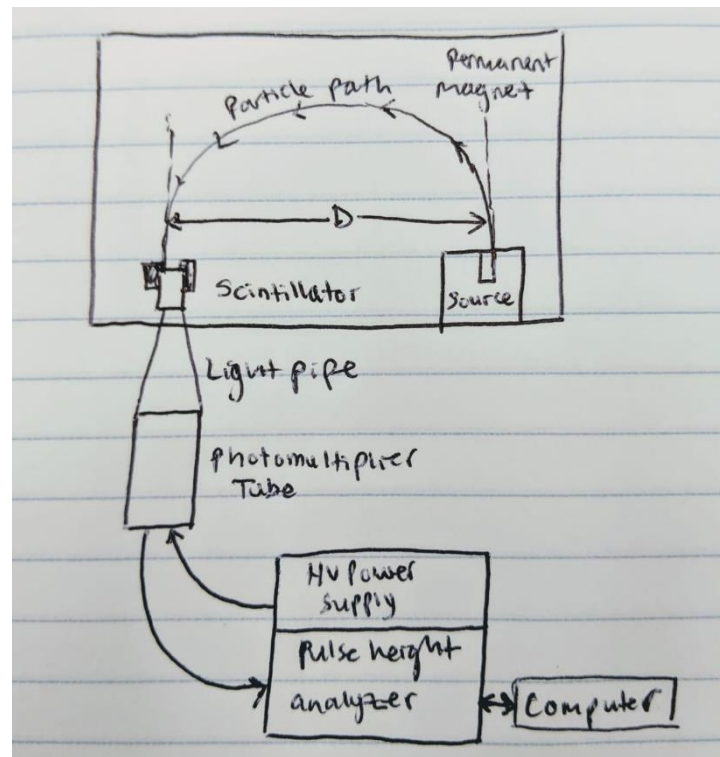 Permanent
magnet
Particle path
D
Scintillator
Source
Light pipe
Photomultiplier
Tube
HV Power
supply
Pulse height
analyzer
Computer